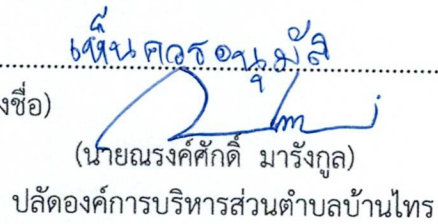 เห็นควรอนุมัติ
งชื่อ)
(นายณรงค์ศักดิ์ มารังกูล)
ปลัดองค์การบริหารส่วนตำบลบ้านไทร